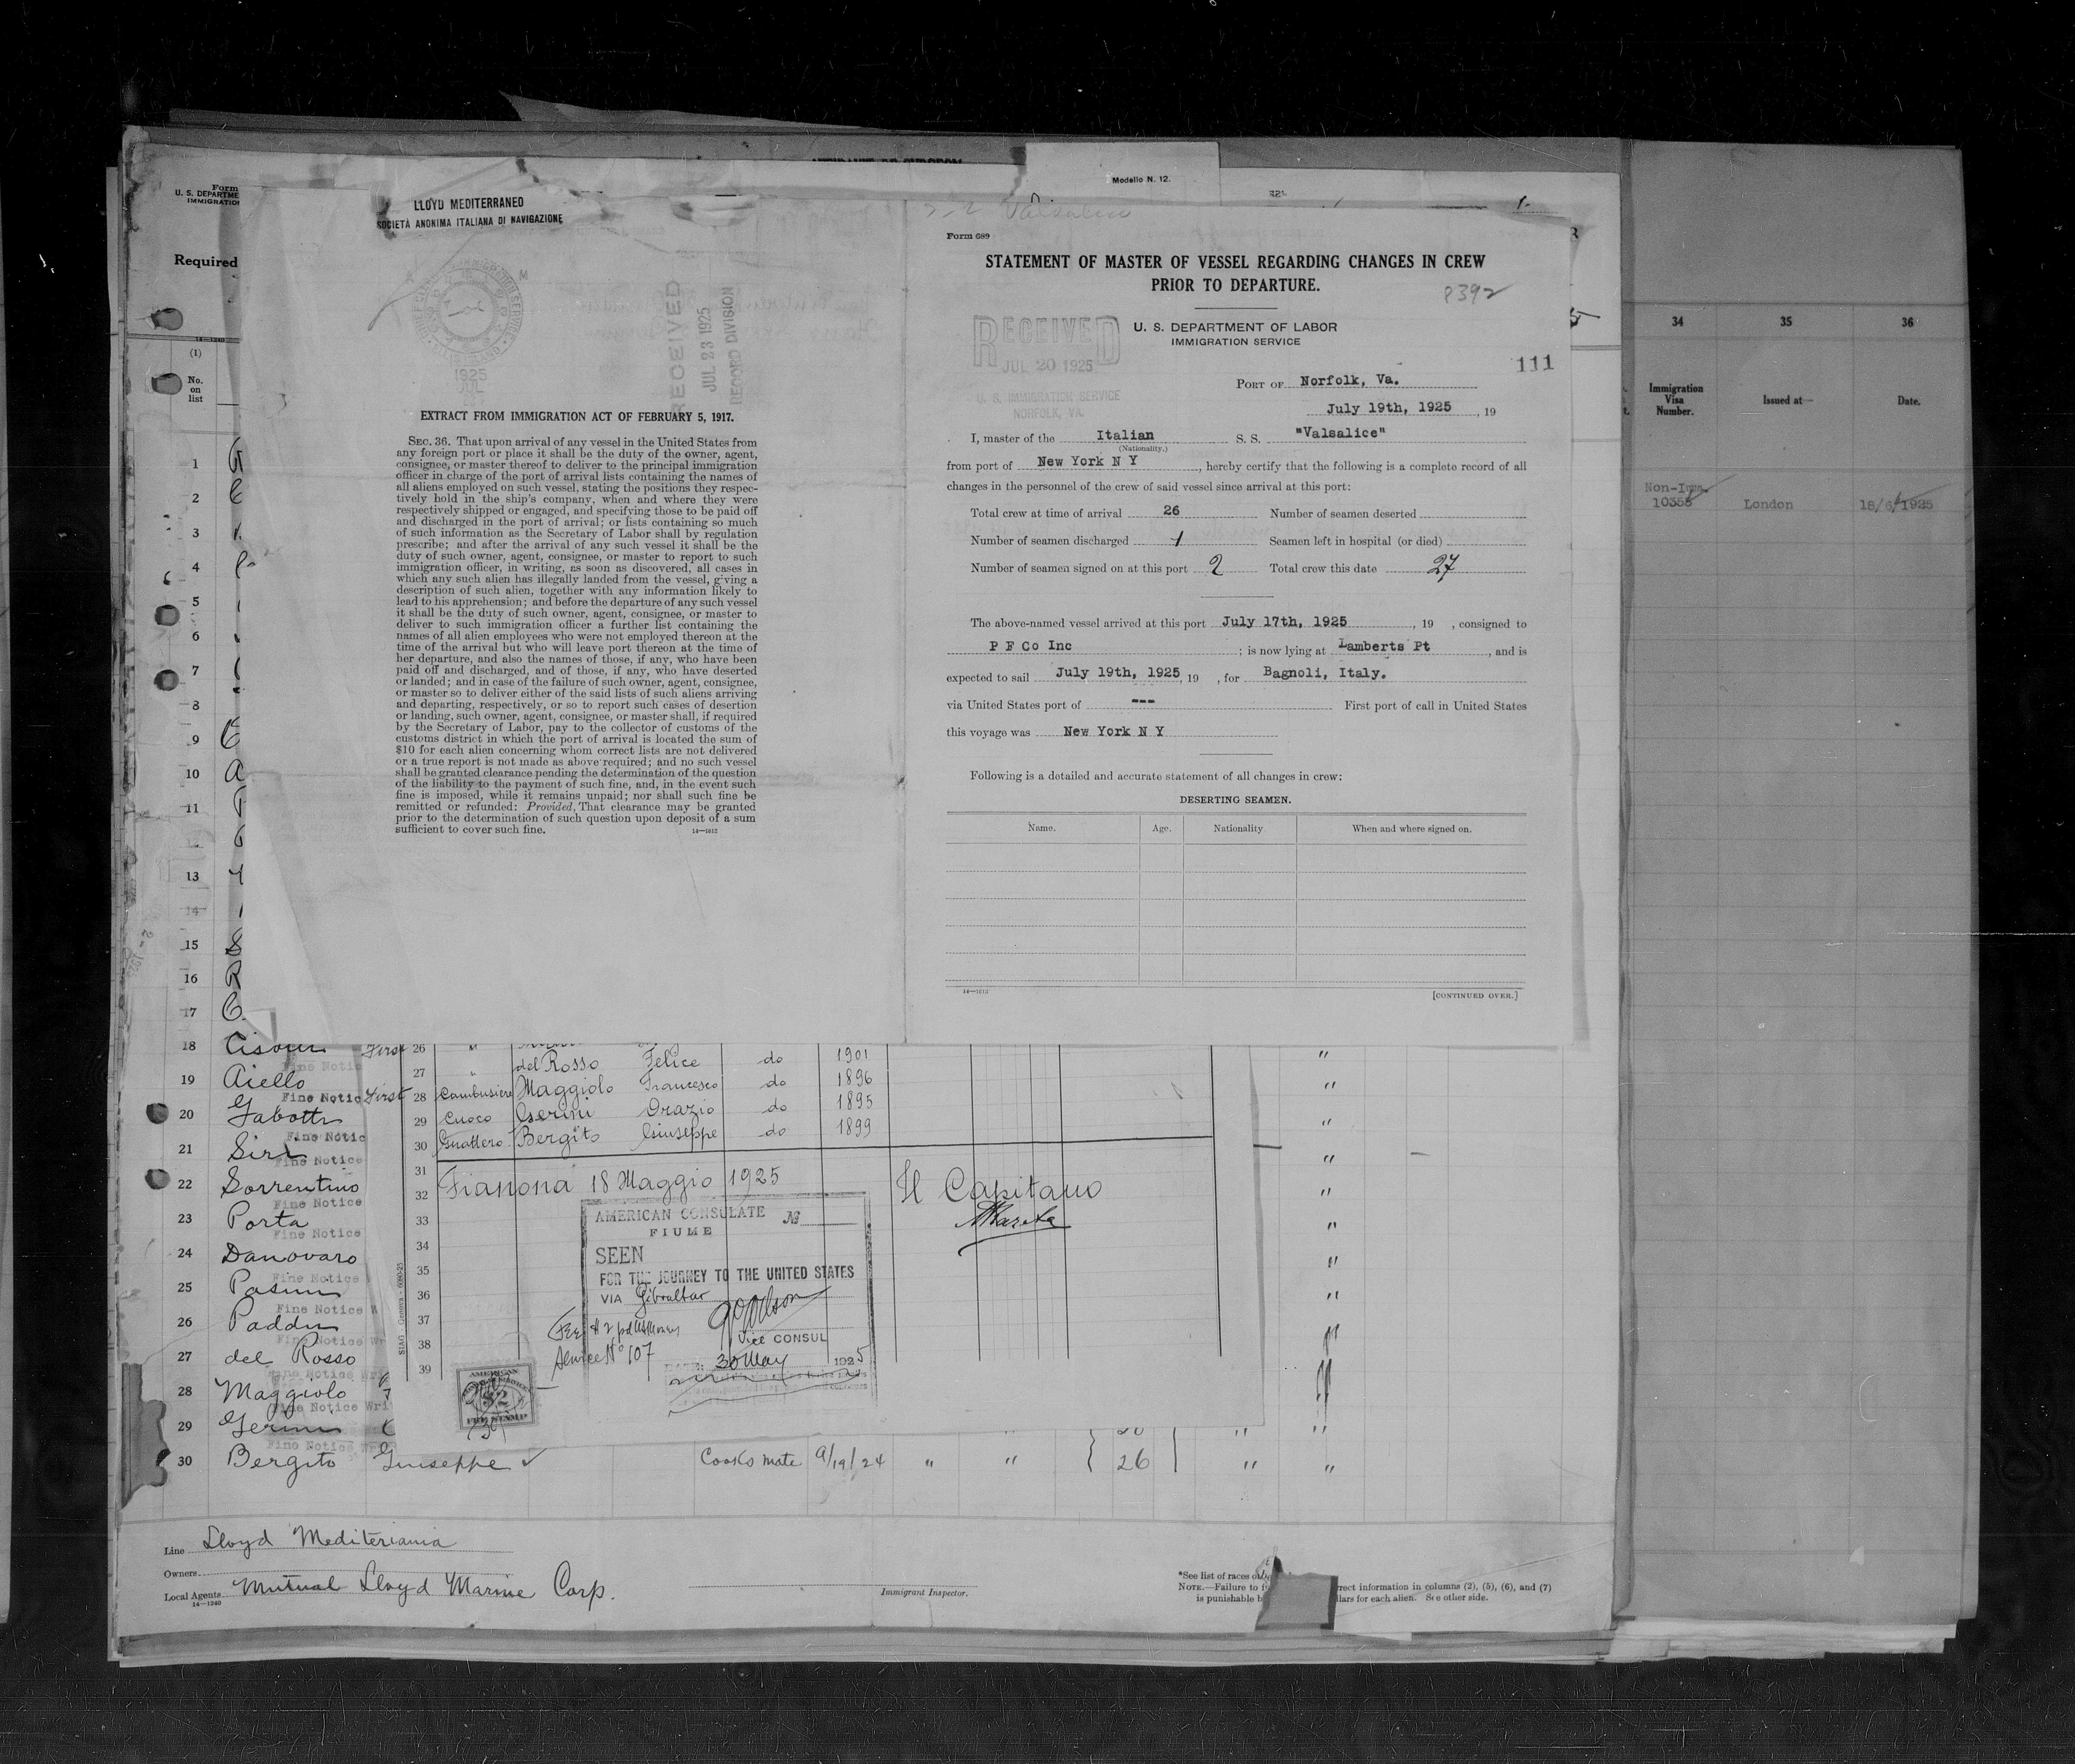 Modello N. 12.
Form
U. S. DEPARTME
IMMIGRATION
Required
(1)
No.
on
list
LLOYD MEDITERRANEO
SOCIETÀ ANONIMA ITALIANA DI NAVIGAZIONE
1925
JUL
RECEIVED
JUL 23 1925
RECORD DIVISION
EXTRACT FROM IMMIGRATION ACT OF FEBRUARY 5, 1917.
SEC. 36. That upon arrival of any vessel in the United States from
any foreign port or place it shall be the duty of the owner, agent,
consignee, or master thereof to deliver to the principal immigration
officer in charge of the port of arrival lists containing the names of
all aliens employed on such vessel, stating the positions they respec-
tively hold in the ship's company, when and where they were
respectively shipped or engaged, and specifying those to be paid off
and discharged in the port of arrival; or lists containing so much
of such information as the Secretary of Labor shall by regulation
prescribe; and after the arrival of any such vessel it shall be the
duty of such owner, agent, consignee, or master to report to such
immigration officer, in writing, as soon as discovered, all cases in
which any such alien has illegally landed from the vessel, giving a
description of such alien, together with any information likely to
lead to his apprehension; and before the departure of any such vessel
it shall be the duty of such owner, agent, consignee, or master to
deliver to such immigration officer a further list containing the
names of all alien employees who were not employed thereon at the
time of the arrival but who will leave port thereon at the time of
her departure, and also the names of those, if any, who have been
paid off and discharged, and of those, if any, who have deserted
or landed; and in case of the failure of such owner, agent, consignee,
or master so to deliver either of the said lists of such aliens arriving
and departing, respectively, or so to report such cases of desertion
or landing, such owner, agent, consignee, or master shall, if required
by the Secretary of Labor, pay to the collector of customs of the
customs district in which the port of arrival is located the sum of
$10 for each alien concerning whom correct lists are not delivered
or a true report is not made as above required; and no such vessel
shall be granted clearance pending the determination of the question
of the liability to the payment of such fine, and, in the event such
fine is imposed, while it remains unpaid; nor shall such fine be
remitted or refunded: Provided, That clearance may be granted
prior to the determination of such question upon deposit of a sum
sufficient to cover such fine.
14—1612
Valsalice
Form 689
STATEMENT OF MASTER OF VESSEL REGARDING CHANGES IN CREW
PRIOR TO DEPARTURE.
8392
RECEIVED
JUL 20 1925
U. S. IMMIGRATION SERVICE
NORFOLK, VA.
U. S. DEPARTMENT OF LABOR
IMMIGRATION SERVICE
111
PORT OF Norfolk, Va.
July 19th, 1925, 19
I, master of the Italian S. S. "Valsalice"
(Nationality.)
from port of New York N Y, hereby certify that the following is a complete record of all
changes in the personnel of the crew of said vessel since arrival at this port:
Total crew at time of arrival 26 Number of seamen deserted
Number of seamen discharged 1 Seamen left in hospital (or died)
Number of seamen signed on at this port 2 Total crew this date 27
The above-named vessel arrived at this port July 17th, 1925, 19 , consigned to
P F Co Inc ; is now lying at Lamberts Pt, and is
expected to sail July 19th, 1925, 19 , for Bagnoli, Italy.
via United States port of --- First port of call in United States
this voyage was New York N Y
Following is a detailed and accurate statement of all changes in crew:
DESERTING SEAMEN.
Name. Age. Nationality When and where signed on.
14—1612
[CONTINUED OVER.]
34 35 36
Immigration
Visa
Number.
Issued at—
Date.
Non-Imm.
10358 London 18/6/1925
1
2
3
4
5
6
7
8
9
10
11
12
13
14
15
16
17
18 First
19 Aiello
Fine Notic First
20 Gabotti
Fine Notic
21 Siri
Fine Notice
22 Sorrentino
Fine Notice
23 Porta
Fine Notice
24 Danovaro
Fine Notice
25 Pasini
Fine Notice W
26 Paddeu
Fine Notice Wr
27 del Rosso
28 Maggiolo
Fine Notice Wri
29 Gerini
Fine Notice Wr
30 Bergito Giuseppe Cooks mate 9/19/24 " " 26 " "
26
27 " del Rosso Felice do 1901
28 Cambusiere Maggiolo Francesco do 1896
29 Cuoco Gerini Orazio do 1895
30 Guattero Bergito Giuseppe do 1899
31
32 Fianona 18 Maggio 1925 Il Capitano
33
34
35
36
37
38
39
SIAG - Genova - 6080-25
AMERICAN CONSULATE No
FIUME
SEEN
FOR THE JOURNEY TO THE UNITED STATES
VIA Gibraltar
VICE CONSUL
Service No 107
DATE: 30 May 1925
AMERICAN
$2
FEE STAMP
Line Lloyd Mediteriania
Owners
Local Agents Mutual Lloyd Marine Corp.
14—1240
Immigrant Inspector.
*See list of races o
NOTE.—Failure to f rrect information in columns (2), (5), (6), and (7)
is punishable b llars for each alien. See other side.